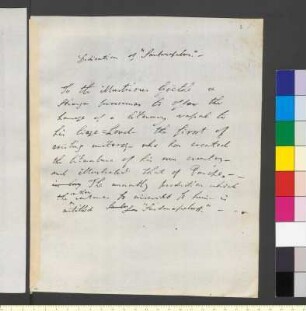 Dedication of "Sardanapalus". —
To the illustrious Goëthe a
Stranger presumes to offer the
homage of a literary vassal to
his liege-Lord — the first of
existing writers — who has created
the literature of his own country —
and illustrated that of Europe. —
The unworthy production which
the author ventures to inscribe to him is
entitled "Sardanapalus." —